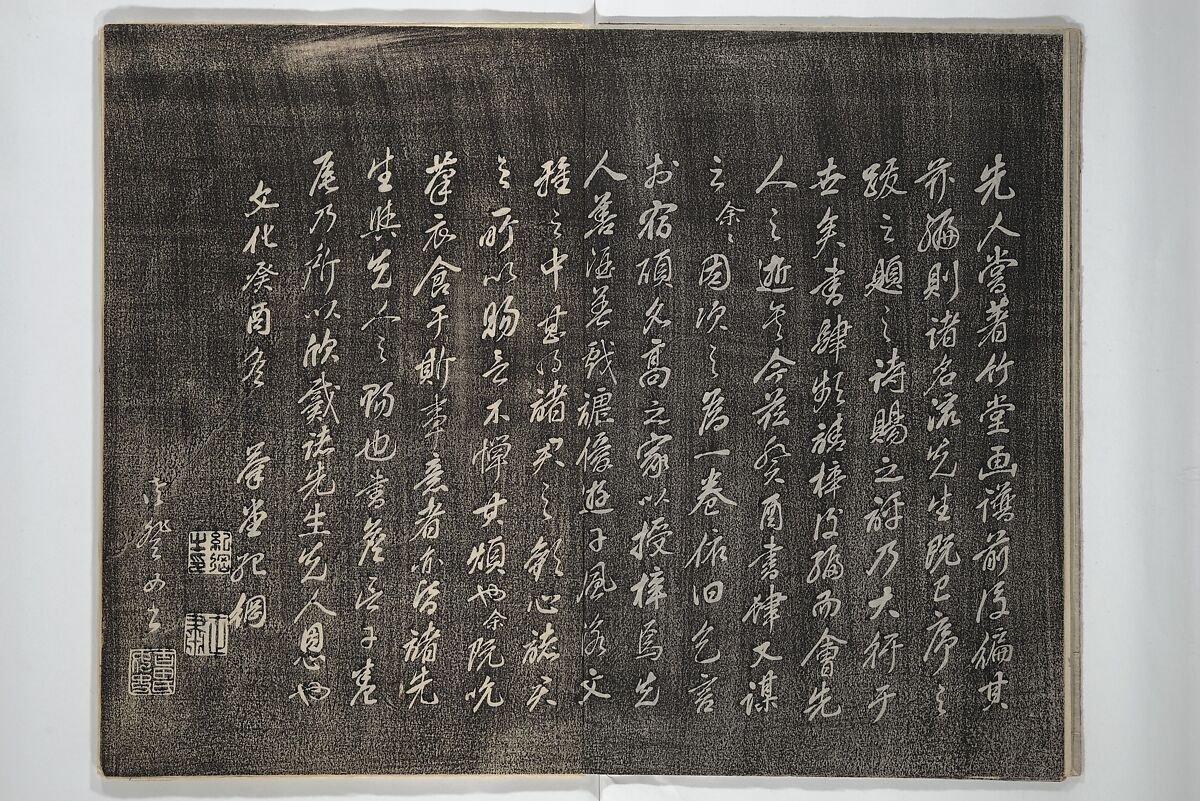 先人嘗著竹堂画譜前後編其
前編則諸名流先生既已序之
跋之題之詩賜之評乃大行于
世矣書肆頻請梓後編而會先
人之逝矣今茲癸酉書肆又謀
之余々因次之為一卷依旧乞言
於宿碩名高之家以授梓焉先
人善酒善戯謔優遊于風流文
雅之中甚得諸君之歓心諸君
之所以賜言不憚其煩也余既
筆衣食于斯事意者亦皆諸先
生與先人之賜也書
尾乃所以欣戴諸先生先人恩也
文化癸酉冬 筆堂紀綱
紀綱